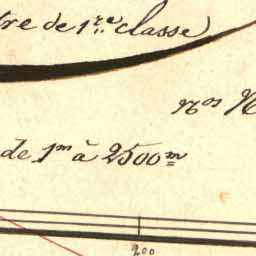 tre de 1.re classe
nos N
de 1m à 2500m
200